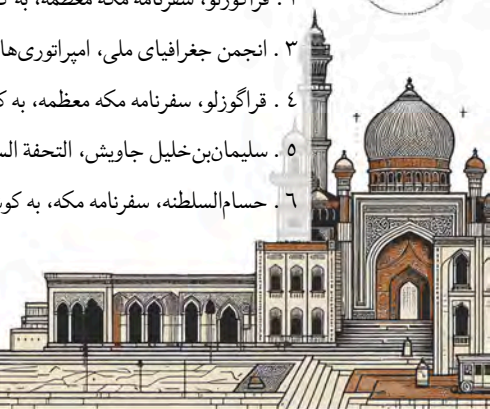 قراگوزلو، سفرنامه مکه معظمه، به
۳ . انجمن جغرافیای ملی، امپراتوری‌ها
٤ . قراگوزلو، سفرنامه مکه معظمه، به
٥ . سلیمان‌بن‌خلیل جاویش، التحفة
٦ . حسام‌السلطنه، سفرنامه مکه، به